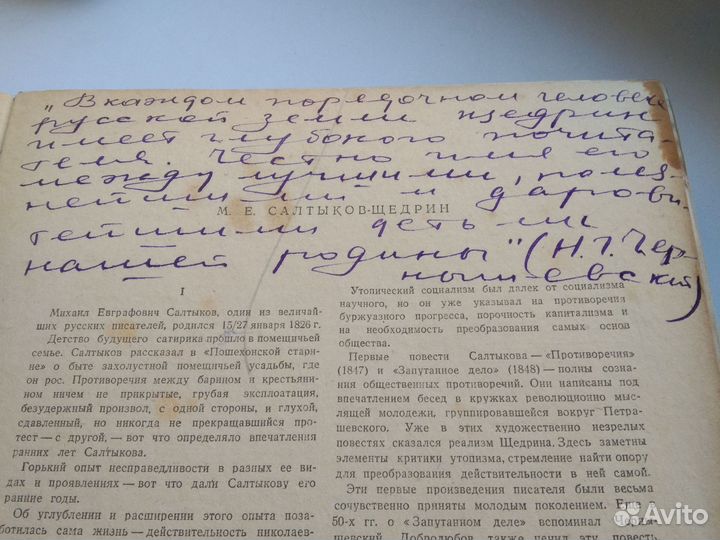 „В каждом порядочном человеке
русской земли Щедрин
имеет глубокого почита-
теля. Честно имя его
между лучшими, полез-
нейшими и дарови-
М. Е. САЛТЫКОВ-ЩЕДРИН
тейшими детьми
нашей родины" (Н. Г. Чер-
нышевский)
I
Михаил Евграфович Салтыков, один из величай-
ших русских писателей, родился 15/27 января 1826 г.
Детство будущего сатирика прошло в помещичьей
семье. Салтыков рассказал в «Пошехонской стари-
не» о быте захолустной помещичьей усадьбы, где
он рос. Противоречия между барином и крестьяни-
ном ничем не прикрытые, грубая эксплоатация,
безудержный произвол, с одной стороны, и глухой,
сдавленный, но никогда не прекращавшийся про-
тест — с другой, — вот что определяло впечатления
ранних лет Салтыкова.
Горький опыт несправедливости в разных ее ви-
дах и проявлениях — вот что дали Салтыкову его
ранние годы.
Об углублении и расширении этого опыта поза-
ботилась сама жизнь — действительность николаев-
Утопический социализм был далек от социализма
научного, но он уже указывал на противоречия
буржуазного прогресса, порочность капитализма и
на необходимость преобразования самых основ
общества.
Первые повести Салтыкова — «Противоречия»
(1847) и «Запутанное дело» (1848) — полны созна-
ния общественных противоречий. Они написаны под
впечатлением бесед в кружках революционно мыс-
лящей молодежи, группировавшейся вокруг Петра-
шевского. Уже в этих художественно незрелых
повестях сказался реализм Щедрина. Здесь заметны
элементы критики утопизма, стремление найти опору
для преобразования действительности в ней самой.
Эти первые произведения писателя были весьма
сочувственно приняты молодым поколением. Еще в
50-х гг. о «Запутанном деле» вспоминал Черны-
шевский. Добролюбов также ценил эту повесть
Avito